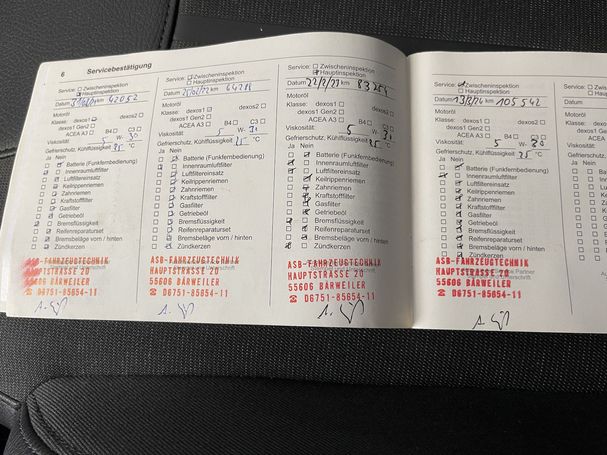 6 Servicebestätigung
Service: Zwischeninspektion
Hauptinspektion
Datum km 42052
Motoröl
Klasse: dexos1 dexos2
dexos1 Gen2
ACEA A3 B4 C3
Viskosität: 5 W- 30
Gefrierschutz, Kühlflüssigkeit 35 °C
Ja Nein
Batterie (Funkfernbedienung)
Innenraumluftfilter
Luftfiltereinsatz
Keilrippenriemen
Zahnriemen
Kraftstofffilter
Gasfilter
Getriebeöl
Bremsflüssigkeit
Reifenreparaturset
Bremsbeläge vorn / hinten
Zündkerzen
ASB-FAHRZEUGTECHNIK
HAUPTSTRASSE 20
55606 BÄRWEILER
☎ 06751-85654-11
Service: Zwischeninspektion
Hauptinspektion
Datum km
Motoröl
Klasse: dexos1 dexos2
dexos1 Gen2
ACEA A3 B4 C3
Viskosität: 5 W- 30
Gefrierschutz, Kühlflüssigkeit 35 °C
Ja Nein
Batterie (Funkfernbedienung)
Innenraumluftfilter
Luftfiltereinsatz
Keilrippenriemen
Zahnriemen
Kraftstofffilter
Gasfilter
Getriebeöl
Bremsflüssigkeit
Reifenreparaturset
Bremsbeläge vorn / hinten
Zündkerzen
ASB-FAHRZEUGTECHNIK
HAUPTSTRASSE 20
55606 BÄRWEILER
☎ 06751-85654-11
Service: Zwischeninspektion
Hauptinspektion
Datum 22/2/23 km 83254
Motoröl
Klasse: dexos1 dexos2
dexos1 Gen2
ACEA A3 B4 C3
Viskosität: 5 W- 30
Gefrierschutz, Kühlflüssigkeit 35 °C
Ja Nein
Batterie (Funkfernbedienung)
Innenraumluftfilter
Luftfiltereinsatz
Keilrippenriemen
Zahnriemen
Kraftstofffilter
Gasfilter
Getriebeöl
Bremsflüssigkeit
Reifenreparaturset
Bremsbeläge vorn / hinten
Zündkerzen
ASB-FAHRZEUGTECHNIK
HAUPTSTRASSE 20
55606 BÄRWEILER
☎ 06751-85654-11
Service: Zwischeninspektion
Hauptinspektion
Datum km 105 542
Motoröl
Klasse: dexos1 dexos2
dexos1 Gen2
ACEA A3 B4 C3
Viskosität: 5 W- 30
Gefrierschutz, Kühlflüssigkeit 35 °C
Ja Nein
Batterie (Funkfernbedienung)
Innenraumluftfilter
Luftfiltereinsatz
Keilrippenriemen
Zahnriemen
Kraftstofffilter
Gasfilter
Getriebeöl
Bremsflüssigkeit
Reifenreparaturset
Bremsbeläge vorn / hinten
Zündkerzen
ASB-FAHRZEUGTECHNIK
HAUPTSTRASSE 20
55606 BÄRWEILER
☎ 06751-85654-11
Service:
Datum
Motoröl
Klasse:
Viskosität:
Gefrierschutz
Ja Nein